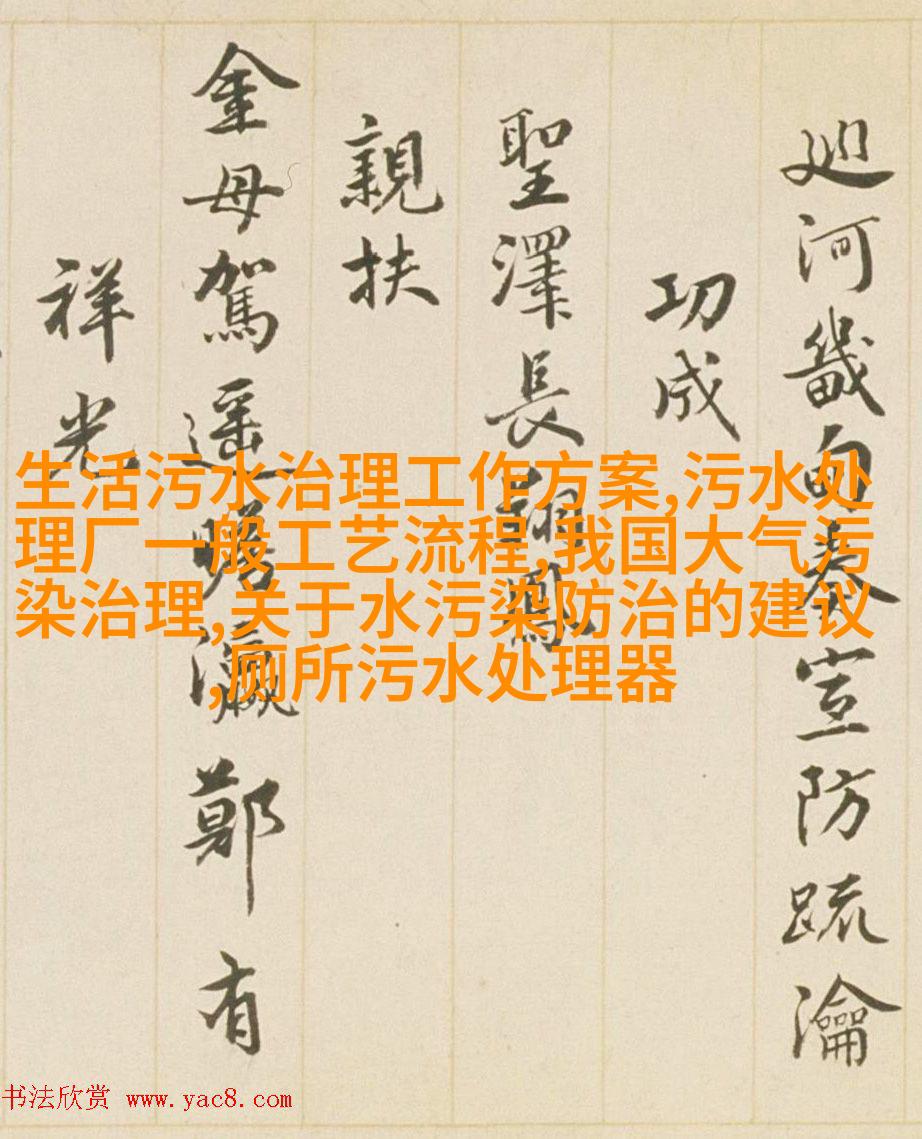 廵河畿甸奏宣防疏瀹
功成
聖澤長詔鄭
親扶
金母駕遥瞻瀛鄭有
祥光
生活污水治理工作方案,污水处
理厂一般工艺流程,我国大气污
染治理,关于水污染防治的建议
,厕所污水处理器
书法欣赏 www.yac8.com